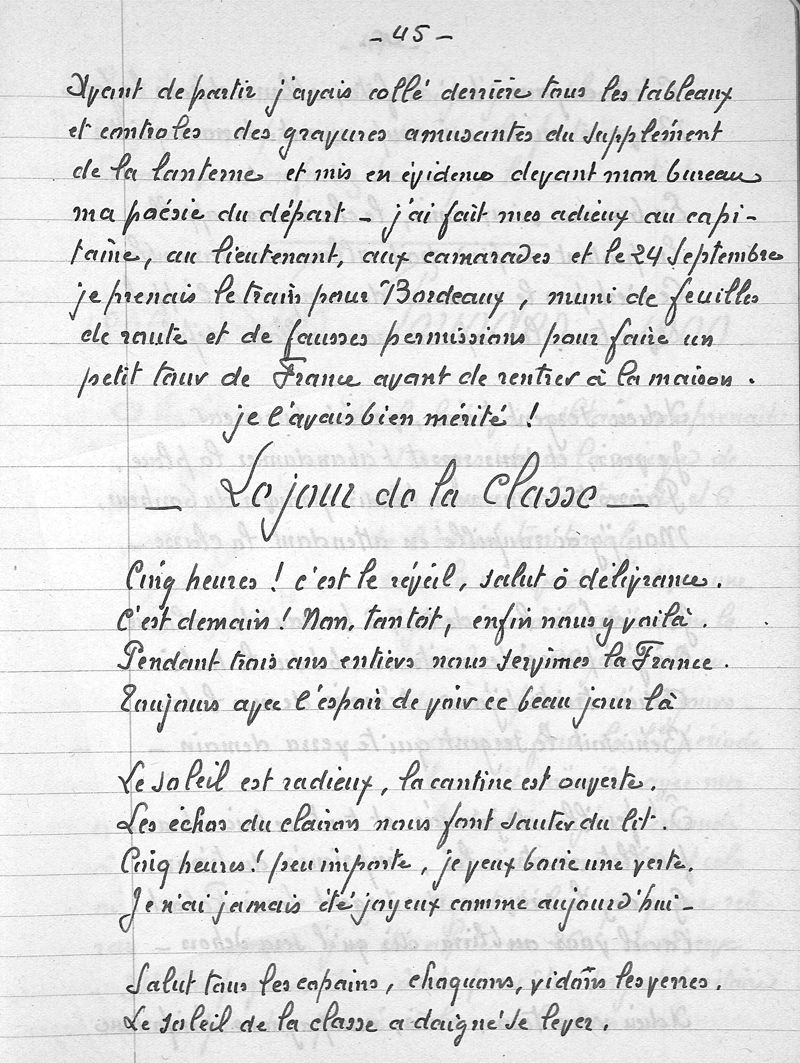 - 45 -
Avant de partir j'avais collé derrière tous les tableaux
et controles des gravures amusantes du supplément
de la lanterne et mis en évidence devant mon bureau
ma poésie du départ - j'ai fait mes adieux au capi-
taine, au lieutenant, aux camarades et le 24 Septembre
je prenais le train pour Bordeaux, muni de feuilles
de route et de fausses permissions pour faire un
petit tour de France avant de rentrer à la maison.
je l'avais bien mérité !
- Le jour de la Classe -
Cinq heures ! c'est le réveil, salut ô délivrance.
C'est demain ! Non, tantôt, enfin nous y voilà.
Pendant trois ans entiers nous servîmes la France.
Toujours avec l'espoir de voir ce beau jour là
Le soleil est radieux, la cantine est ouverte.
Les échos du clairon nous font sauter du lit.
Cinq heures ! peu importe, je veux boire une verte.
Je n'ai jamais été joyeux comme aujourd'hui -
Salut tous les copains, choquons, vidons les verres.
Le soleil de la classe a daigné se lever.